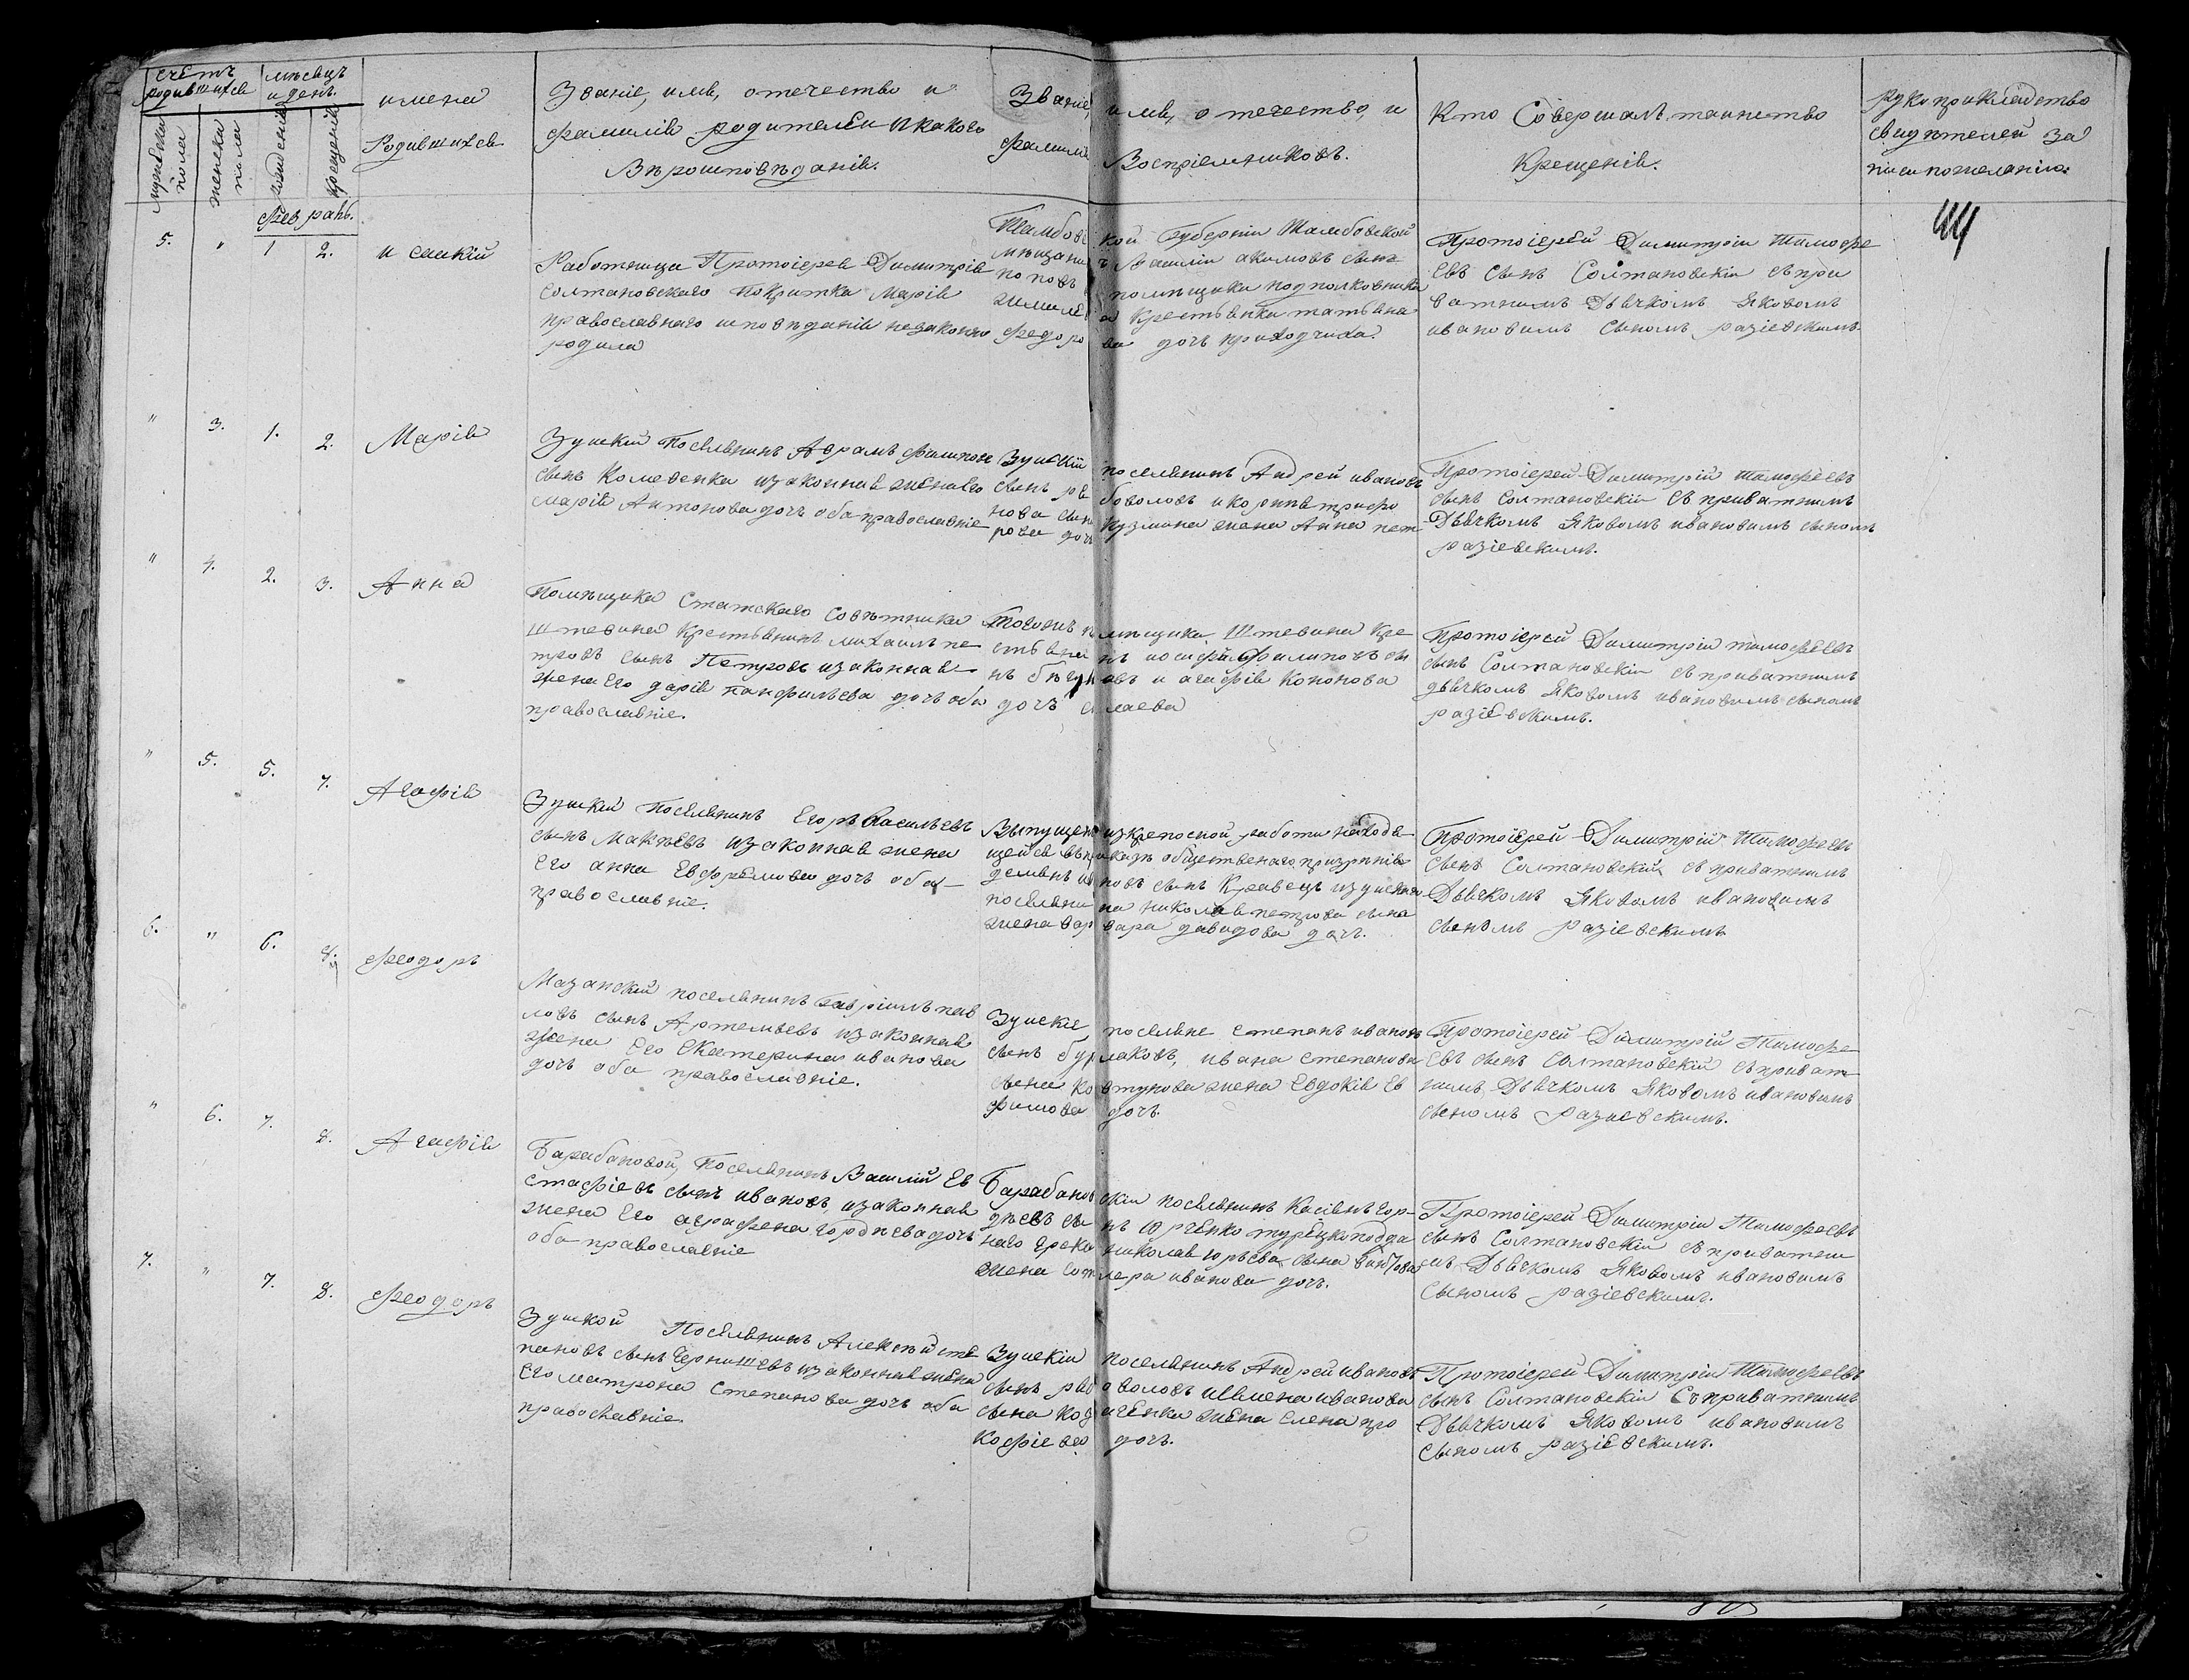 счетъ родившихся
мѣсяцъ и день.
имена
Родившихся
Званіе, имя, отечество и
фамилія родителей и какого
Вѣроисповѣданія.
Званіе, имя, отечество, и
фамилія Воспріемниковъ.
Кто Совершалъ таинство
Крещенія.
Рукоприкладство
свидѣтелей за
писи пожеланію.
мужеска пола
женска пола
рожденія
крещенія
февраль.
44
5. " 1 2. исакій
Работница Протоіерея Димитрія
Солтановскаго Покритка Марія
православнаго исповѣданія незаконно
родила
Тамбовской Губерніи Тамбовской
мѣщанинъ Василій акимовъ сынъ
поповъ помѣщика подполковника
крестьянка татьяна
федорова дочь приходчиха.
Протоіерей Димитрій Тимофе
евъ сынъ Солтановскій съ при
ватнимъ Дьячкомъ Яковомъ
ивановимъ сыномъ разіевскимъ.
" 3. 1. 2. Марія
Зуискій Поселянинъ Аврамъ филипон
сынъ Коледенка изаконная жена его
марія Антонова дочь оба православніе
Зуискій поселянинъ Андрей ивановъ
сынъ рябоволовъ и корнѣя трифо
нова сына Кузмина жена Анна пет
рова дочь
Протоіерей Димитрій тимофеевъ
сынъ Солтановскій съ приватнимъ
Дьячкомъ Яковомъ ивановимъ сыномъ
разіевскимъ.
" 4. 2. 3. Анна
Помѣщика Статскаго Совѣтника
Штевина Крестьянинъ михаилъ пе
тровъ сынъ Петровъ изаконная
жена Его дарія панфильева дочь оба
православніе.
Тогожъ помѣщика Штевина кре
стьянинъ иосифъ филиповъ сы
нъ бѣгуновъ и агафія Кононова
дочь
Протоіерей Димитрій тимофеевъ
сынъ Солтановскій съ приватнимъ
дьячкомъ Яковомъ ивановимъ сыномъ
разіевскимъ.
" 5. 5. 7. Агафія
Зуискій Поселянинъ Егоръ Васильевъ
сынъ Макѣевъ изаконная жена
Его анна Евфремова дочь оба
православніе.
Выпущен изкрепосной работи находя
щейся въ приказѣ общественаго призрѣнія
новъ сынъ Кравецъ изуискаго
поселянина николая петрова сына
жена варвара давидова дочь.
Протоіерей Димитрій Тимофеевъ
сынъ Солтановскій съ приватнимъ
Дьячкомъ Яковомъ ивановимъ
сыномъ разіевскимъ
6. " 6. 8. Феодоръ
Мазанской поселянинъ Гавріилъ пав
ловъ сынъ Артемьевъ изаконная
жена Его Екатерина иванова
дочь оба православніе.
Зуискіе поселяне степанъ ивановъ
сынъ бурлаковъ, ивана степанова
сына Ковтунова жена Евдокія Ев
фимова дочь.
Протоіерей Димитрій Тимофе
евъ сынъ Солтановскій съ приват
нимъ Дьячкомъ Яковомъ ивановимъ
сыномъ разиевскимъ.
" 6. 7. 8. Агафія
Барабановой Поселянинъ Василій Ев
стафіевъ сынъ ивановъ, изаконная
жена Его аграфена гордѣева дочь
оба православніе
Барабановскій поселянинъ Касіянъ гор
дѣевъ сынъ Юрченко турецкоподда
наго грека николая юрьева сына
жена иванова дочь.
Протоіерей Димитрій Тимофеевъ
сынъ Солтановскій съ приватни
мъ Дьячкомъ Яковомъ ивановимъ
Сыномъ разіевскимъ.
7. " 7. 8. Феодоръ
Зуиской Поселянинъ Алексѣй сте
пановъ сынъ Чернишевъ изаконная жена
Его матрона Степанова дочь оба
православніе.
Зуискіи поселянинъ Андрей ивановъ
сынъ рябоволовъ и Симена иванова
сына жена Елена про
кофіева дочь.
Протоіерей Димитрій Тимофеевъ
сынъ Солтановскій Съ приватнимъ
Дьячкомъ Яковомъ ивановимъ
Сыномъ разіевскимъ.